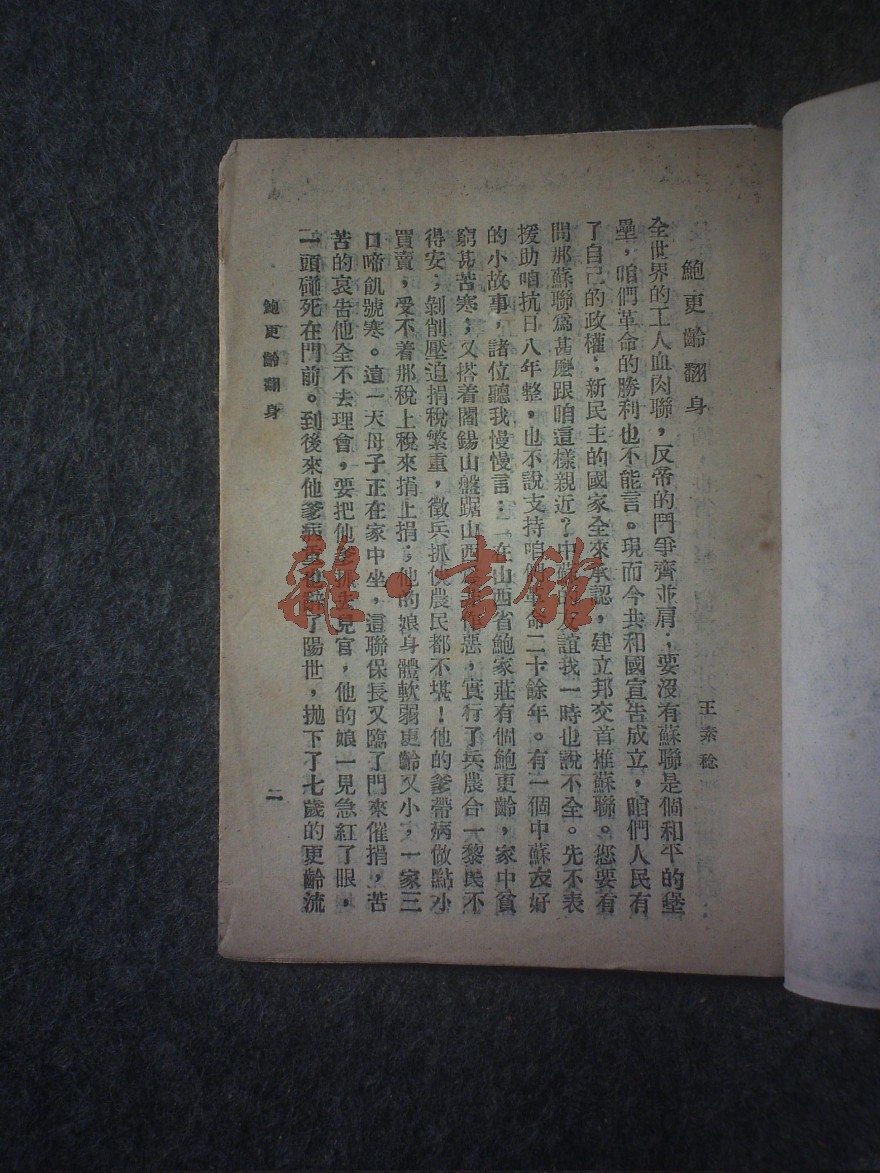 鮑更齡翻身
王素稔
全世界的工人血肉聯，反帝的鬥爭齊並肩；要沒有蘇聯是個和平的堡
壘，咱們革命的勝利也不能言。現而今共和國宣告成立，咱們人民有
了自己的政權；新民主的國家全來承認，建立邦交首推蘇聯。您要有
問那蘇聯爲甚麼跟咱這樣親近？中蘇的友誼我一時也說不全。先不表
援助咱抗日八年整，也不說支持咱們革命二十餘年。有一個中蘇友好
的小故事，諸位聽我慢慢言：一在山西省鮑家莊有個鮑更齡，家中貧
窮甚苦寒；又搭着閻錫山盤踞山西惡，實行了兵農合一黎民不
得安；剝削壓迫捐稅繁重，徵兵抓伕農民都不堪！他的爹帶病做點小
買賣，受不着那稅上稅來捐上捐；他的娘身體軟弱更齡又小，一家三
口啼飢號寒。這一天母子正在家中坐，這聯保長又臨了門來催捐，苦
苦的哀告他全不去理會，要把他爹抓去見官，他的娘一見急紅了眼，
一頭碰死在門前。到後來他爹病重也辭了陽世，拋下了七歲的更齡流
鮑更齡翻身
二
雜·書館